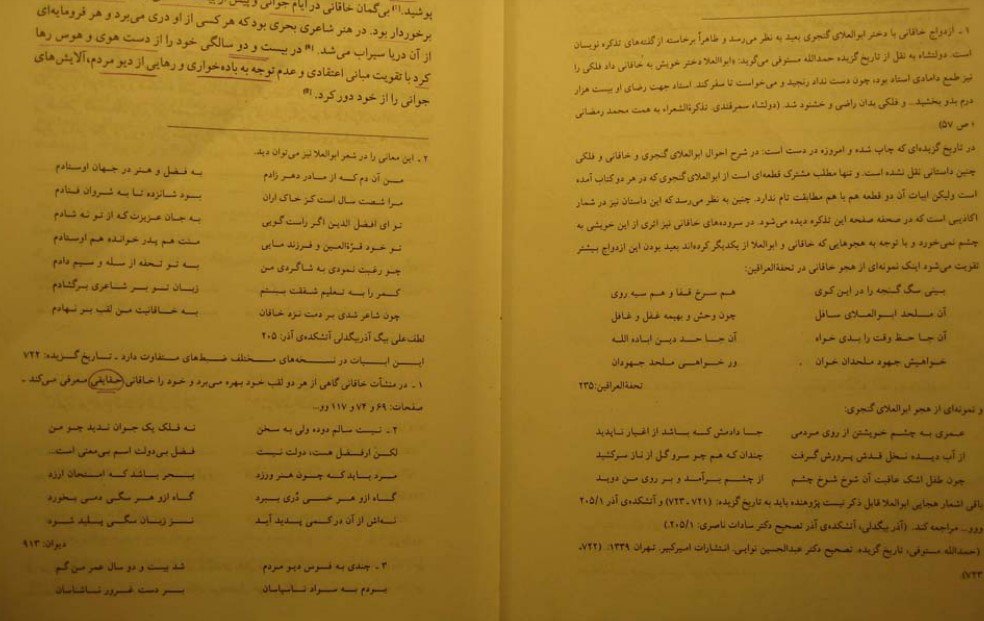 ۱ - ازدواج خاقانی با دختر ابوالعلای گنجوی بعید به نظر می‌رسد و ظاهراً برخاسته از گفته‌های تذکره نویسان
است. دولتشاه به نقل از تاریخ گزیده حمدالله مستوفی می‌گوید: «ابوالعلا دختر خویش به خاقانی داد فلکی را
نیز طمع دامادی استاد بود، چون دست نداد رنجید و می‌خواست تا سفر کند. استاد جهت رضای او بیست هزار
درم بدو بخشید... و فلکی بدان راضی و خشنود شد. (دولتشاه سمرقندی. تذکرةالشعراء به همت محمد رمضانی
ص ۵۷)
در تاریخ گزیده‌ای که چاپ شده و امروزه در دست است: در شرح احوال ابوالعلای گنجوی و خاقانی و فلکی
چنین داستانی نقل نشده است. و تنها مطلب مشترک قطعه‌ای است از ابوالعلای گنجوی که در هر دو کتاب آمده
است ولیکن ابیات آن دو قطعه هم با هم مطابقت تام ندارد. چنین به نظر می‌رسد که این داستان نیز در شمار
اکاذیبی است که در صحفه صفحه این تذکره دیده می‌شود. در سروده‌های خاقانی نیز اثری از این خویشی به
چشم نمی‌خورد و با توجه به هجوهایی که خاقانی و ابوالعلا از یکدیگر کرده‌اند بعید بودن این ازدواج بیشتر
تقویت می‌شود اینک نمونه‌ای از هجو خاقانی در تحفةالعراقین:
بینی سگ گنجه را در این کوی هم سرخ قفا و هم سیه روی
آن ملحد ابوالعلای سافل چون وحش و بهیمه غفل و غافل
آن جا حظ وقت را بدی خواه آن جا حد دین اباده الله
خواهیش جهود ملحدان خوان ور خواهی ملحد جهودان
تحفةالعراقین:۲۳۵
و نمونه‌ای از هجو ابوالعلای گنجوی:
عمری به چشم خویشتن از روی مردمی جا دادمش که باشد از اغیار ناپدید
از آب دیده نخل قدش پرورش گرفت چندان که هم چو سرو گل از ناز سرکشید
چون طفل اشک عاقبت آن شوخ شوخ چشم از چشم برآمد و بر روی من دوید
باقی اشعار هجایی ابوالعلا قابل ذکر نیست پژوهنده باید به تاریخ گزیده: (۷۲۱ ـ ۷۲۳) و آتشکده‌ی آذر ۲۰۵/۱
ووو... مراجعه کند. (آذر بیگدلی، آتشکده‌ی آذر تصحیح دکتر سادات ناصری: ۲۰۵/۱.)
(حمدالله مستوفی، تاریخ گزیده. تصحیح دکتر عبدالحسین نوایی. انتشارات امیرکبیر. تهران ۱۳۳۹. (۷۲۲،
۷۲۳)
پوشید.[۱] بی‌گمان خاقانی در ایام جوانی و پیش از
برخوردار بود. در هنر شاعری بحری بود که هر کسی از او دری می‌برد و هر فرومایه‌ای
از آن دریا سیراب می‌شد. در بیست و دو سالگی خود را از دست هوی و هوس رها
کرد با تقویت مبانی اعتقادی و عدم توجه به باده‌خواری و رهایی از دیو مردم، آلایش‌های
جوانی را از خود دور کرد.
۲ ـ این معانی را در شعر ابوالعلا نیز می‌توان دید.
من آن دم که از مادر دهر زادم به فضل و هنر در جهان اوستادم
مرا شصت سال است کز خاک اران بود شانزده تا به شروان فتادم
تو ای افضل الدین اگر راست گویی به جان عزیزت که از تو نه شادم
تو خود قرةالعین و فرزند مایی منت هم پدر خوانده هم اوستادم
چو رغبت نمودی به شاگردی من به تو تحفه از سله و سیم دادم
کمر را به تعلیم شفقت ببستم زبان تو بر شاعری برگشادم
چون شاعر شدی بر دمت نزد خاقان به خاقانیت من لقب بر نهادم
لطف‌علی بیگ آذربیگدلی آتشکده‌ی آذر: ۲۰۵
این ابیات در نسخه‌های مختلف ضبط‌های متفاوت دارد ـ تاریخ گزیده: ۷۲۲
۱ ـ در منشآت خاقانی گاهی از هر دو لقب خود بهره می‌برد و خود را خاقانی حقایقی معرفی می‌کند ـ
صفحات: ۶۹ و ۷۴ و ۱۱۷ وو...
۲ ـ نیست سالم دوده ولی به سخن نه فلک یک جوان ندید چو من
لکن ارفضل هست، دولت نیست فضل بی‌دولت اسم بی‌معنی است...
مرد باید که چون هنر ورزد بحر باشد که امتحان ارزد
گاه ازو هر خسی دُری ببرد گاه ازو هر سگی دمی بخورد
نه‌اش از آن در کمی پدید آید نز زبان سگی پلید شود
دیوان: ۹۱۳
۳ ـ چندی به فوس دیو مردم شد بیست و دو سال عمر من گم
بردم به مراد نابیابان بر دست غرور ناشتابان